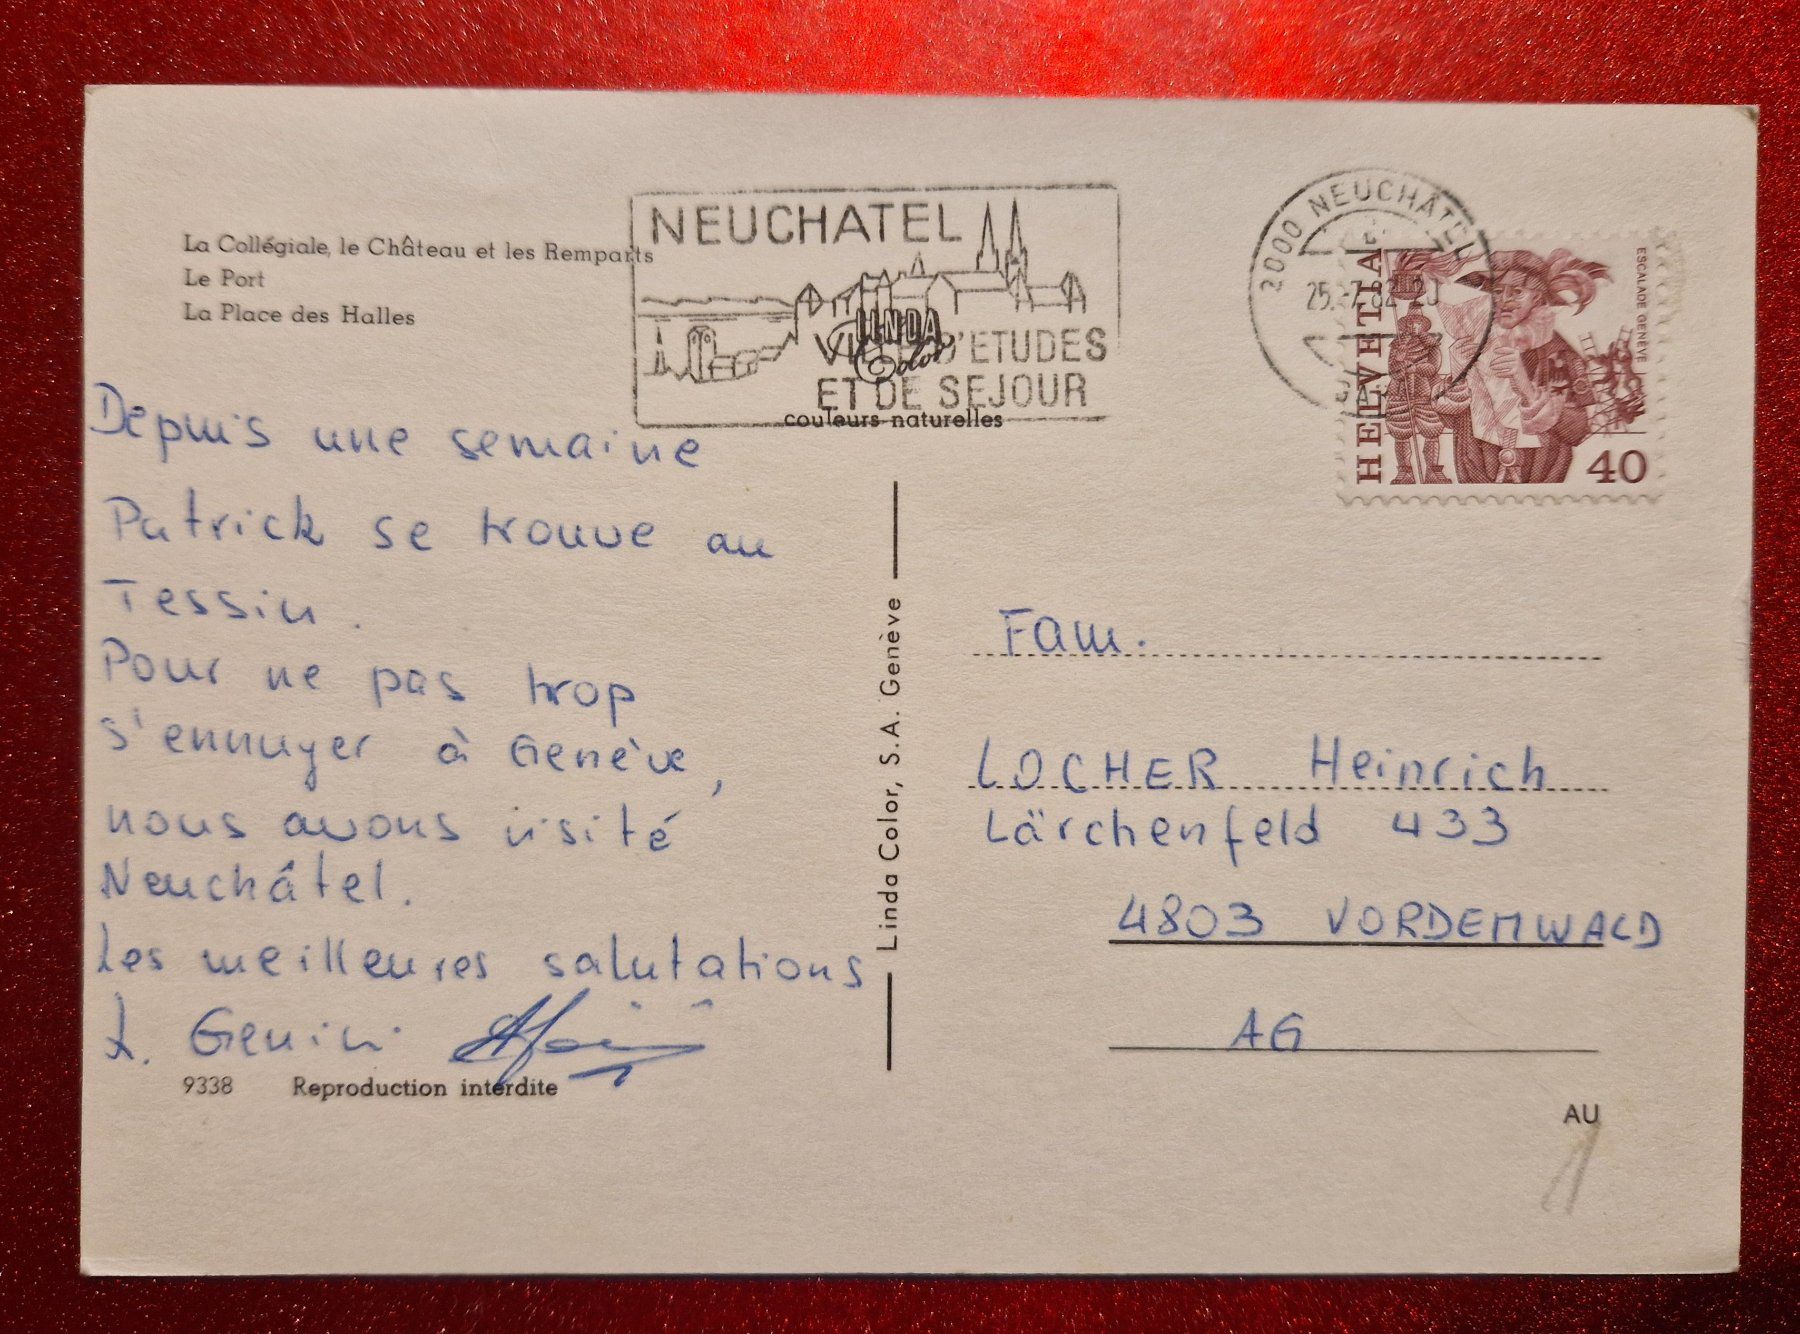 La Collégiale, le Château et les Remparts
Le Port
La Place des Halles
NEUCHATEL
VILLE D'ETUDES
ET DE SEJOUR
LINDA
Color
couleurs naturelles
2000 NEUCHÂTEL
25.-7.82-20
HELVETIA
ESCALADE GENÈVE
40
Depuis une semaine
Patrick se trouve au
Tessin.
Pour ne pas trop
s'ennuyer à Genève,
nous avons visité
Neuchâtel.
Les meilleures salutations
Genini
9338 Reproduction interdite
Linda Color, S.A. Genève
Fam.
LOCHER Heinrich
Lärchenfeld 433
4803 VORDEMWALD
AG
AU